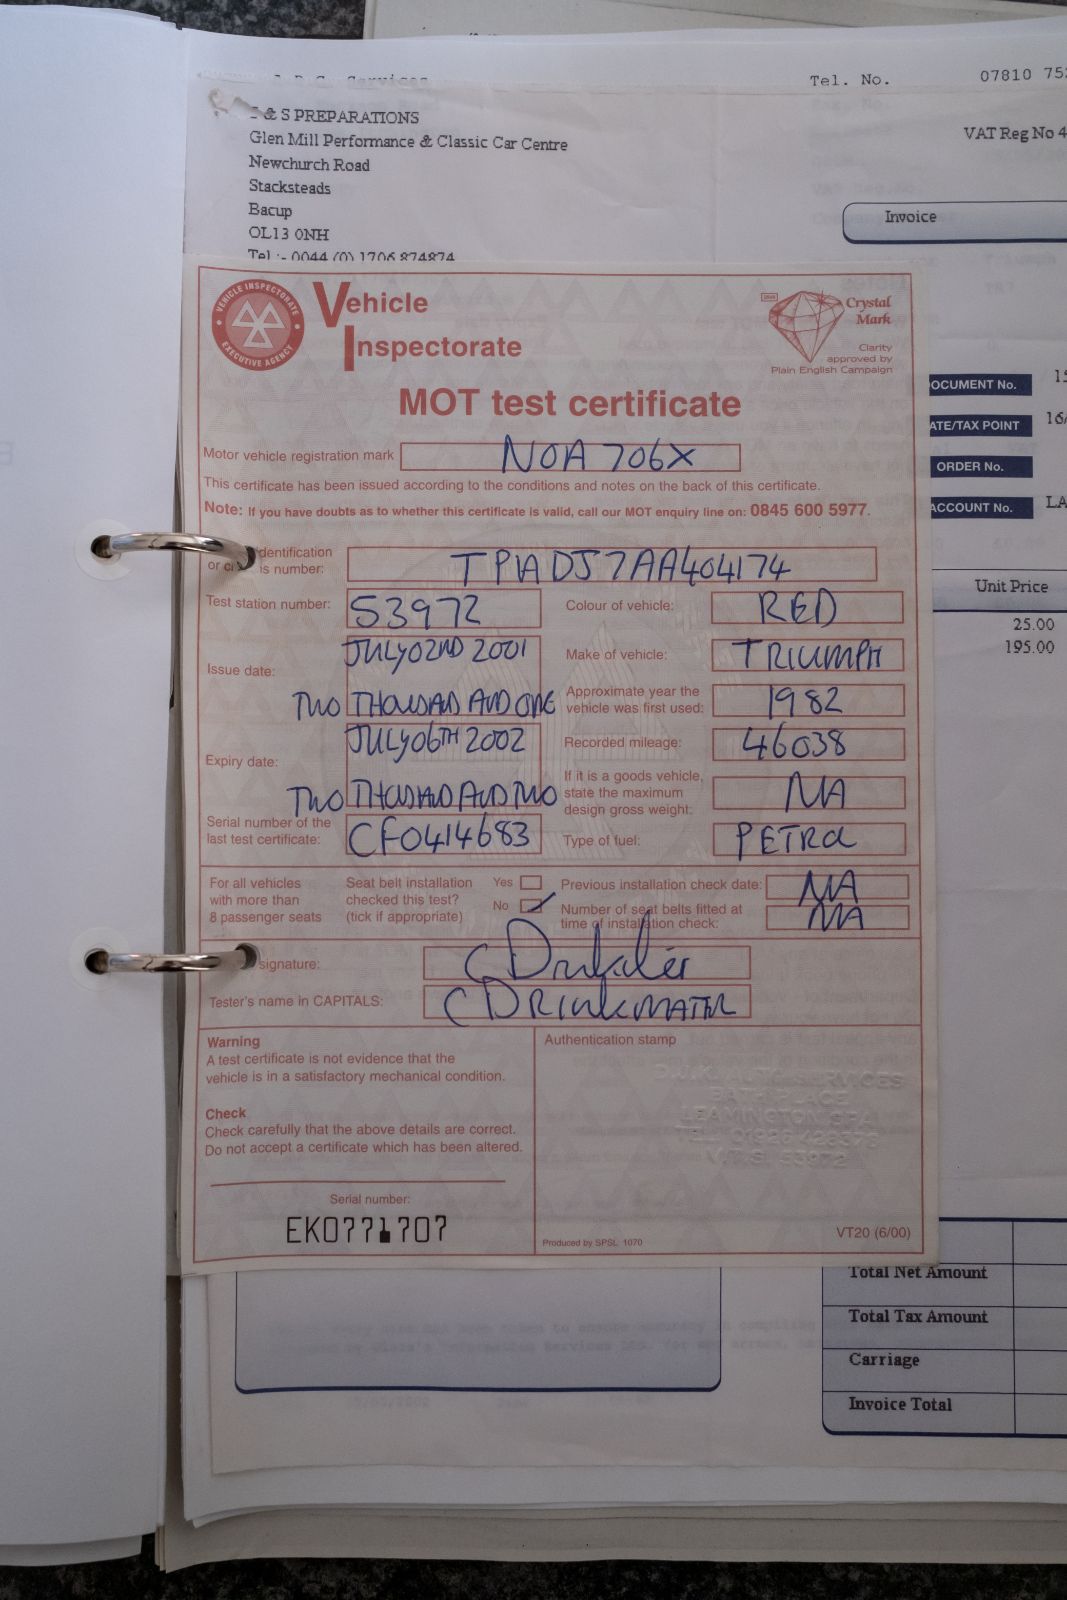 Tel. No. 07810
& S PREPARATIONS
Glen Mill Performance & Classic Car Centre
VAT Reg No 4
Newchurch Road
Stacksteads
Bacup
Invoice
OL13 0NH
Tel :- 0044 (0) 1706 874874
VEHICLE INSPECTORATE
EXECUTIVE AGENCY
Vehicle
Inspectorate
Crystal
Mark
Clarity
approved by
Plain English Campaign
MOT test certificate
OCUMENT No.
ATE/TAX POINT 16/
ORDER No.
ACCOUNT No. LA
Motor vehicle registration mark NOA 706X
This certificate has been issued according to the conditions and notes on the back of this certificate.
Note: If you have doubts as to whether this certificate is valid, call our MOT enquiry line on: 0845 600 5977.
dentification
or is number: TPADJ7AA404174
Test station number: S3972
Colour of vehicle: RED
Issue date: JULY 02ND 2001
TWO THOUSAND AND ONE
Make of vehicle: TRIUMPH
Approximate year the
vehicle was first used: 1982
Expiry date: JULY 06TH 2002
TWO THOUSAND AND TWO
Recorded mileage: 46038
If it is a goods vehicle,
state the maximum
design gross weight: NA
Serial number of the
last test certificate: CF0414683
Type of fuel: PETROL
Unit Price
25.00
195.00
For all vehicles
with more than
8 passenger seats
Seat belt installation
checked this test?
(tick if appropriate)
Yes
No
Previous installation check date: NA
Number of seat belts fitted at
time of installation check: NA
signature: C Drinkwater
Tester's name in CAPITALS: C DRINKWATER
Warning
A test certificate is not evidence that the
vehicle is in a satisfactory mechanical condition.
Check
Check carefully that the above details are correct.
Do not accept a certificate which has been altered.
Serial number:
EK0771707
Authentication stamp
BATH PLACE
LEAMINGTON SPA
V.T.S. 53972
Produced by SPSL 1070
VT20 (6/00)
Total Net Amount
Total Tax Amount
Carriage
Invoice Total